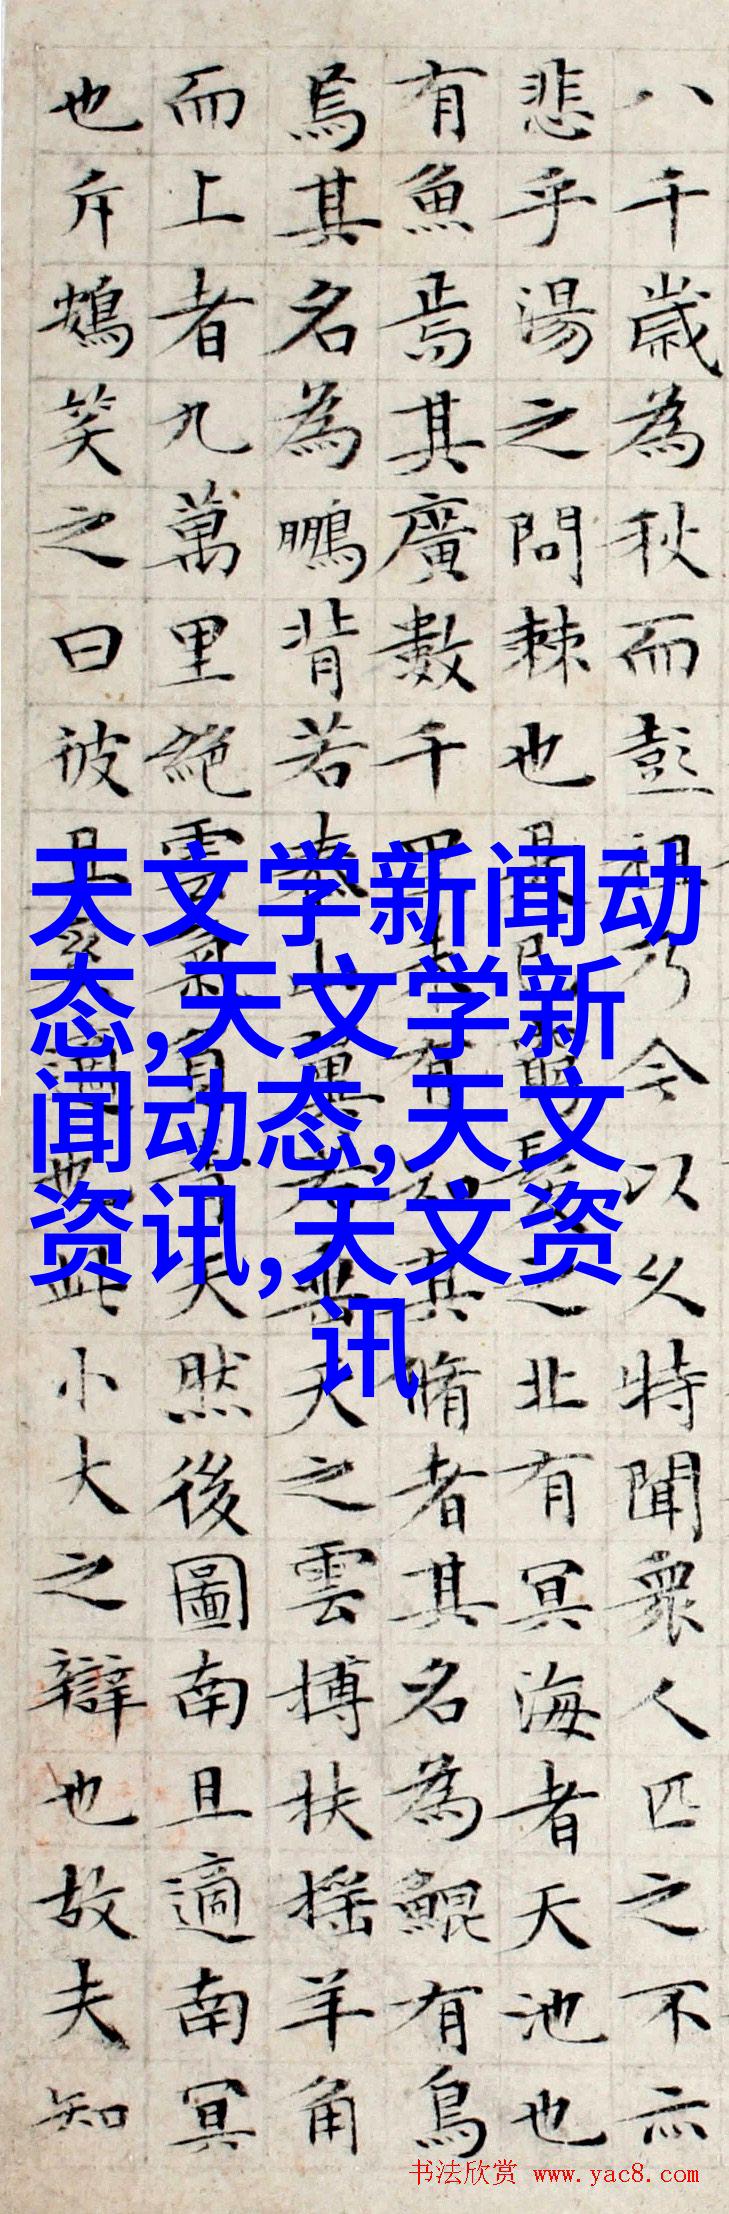 八千歲為秋而彭祖乃今以久特聞衆人匹之不亦
悲乎湯之問棘也是已窮髮之北有冥海者天池也
有魚焉其廣數千里未有知其脩者其名為鯤有鳥
焉其名為鵬背若泰山翼若垂天之雲搏扶搖羊角
而上者九萬里絕雲氣負青天然後圖南且適南冥
也斥鴳笑之曰彼且奚適也此小大之辯也故夫知
天文学新闻动
态,天文学新
闻动态,天文
资讯,天文资
讯
书法欣赏 www.yac8.com